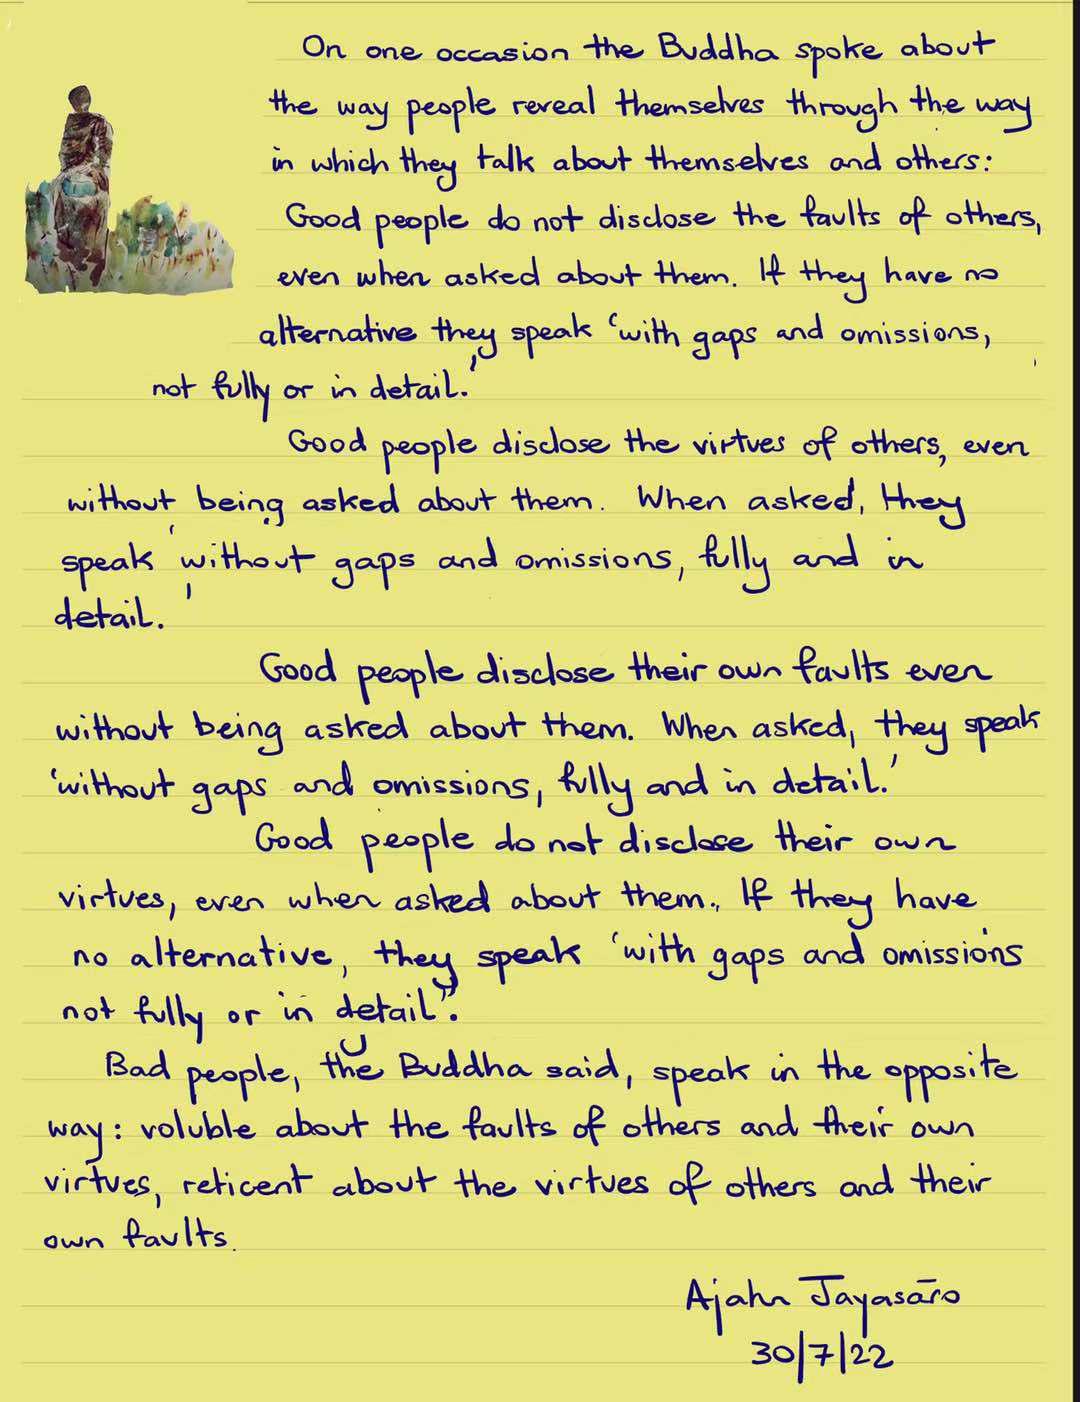 On one occasion the Buddha spoke about
the way people reveal themselves through the way
in which they talk about themselves and others:
Good people do not disclose the faults of others,
even when asked about them. If they have no
alternative they speak 'with gaps and omissions,
not fully or in detail.'
Good people disclose the virtues of others, even
without being asked about them. When asked, they
speak 'without gaps and omissions, fully and in
detail.'
Good people disclose their own faults even
without being asked about them. When asked, they speak
'without gaps and omissions, fully and in detail.'
Good people do not disclose their own
virtues, even when asked about them. If they have
no alternative, they speak 'with gaps and omissions
not fully or in detail'.
Bad people, the Buddha said, speak in the opposite
way: voluble about the faults of others and their own
virtues, reticent about the virtues of others and their
own faults.
Ajahn Jayasāro
30/7/22